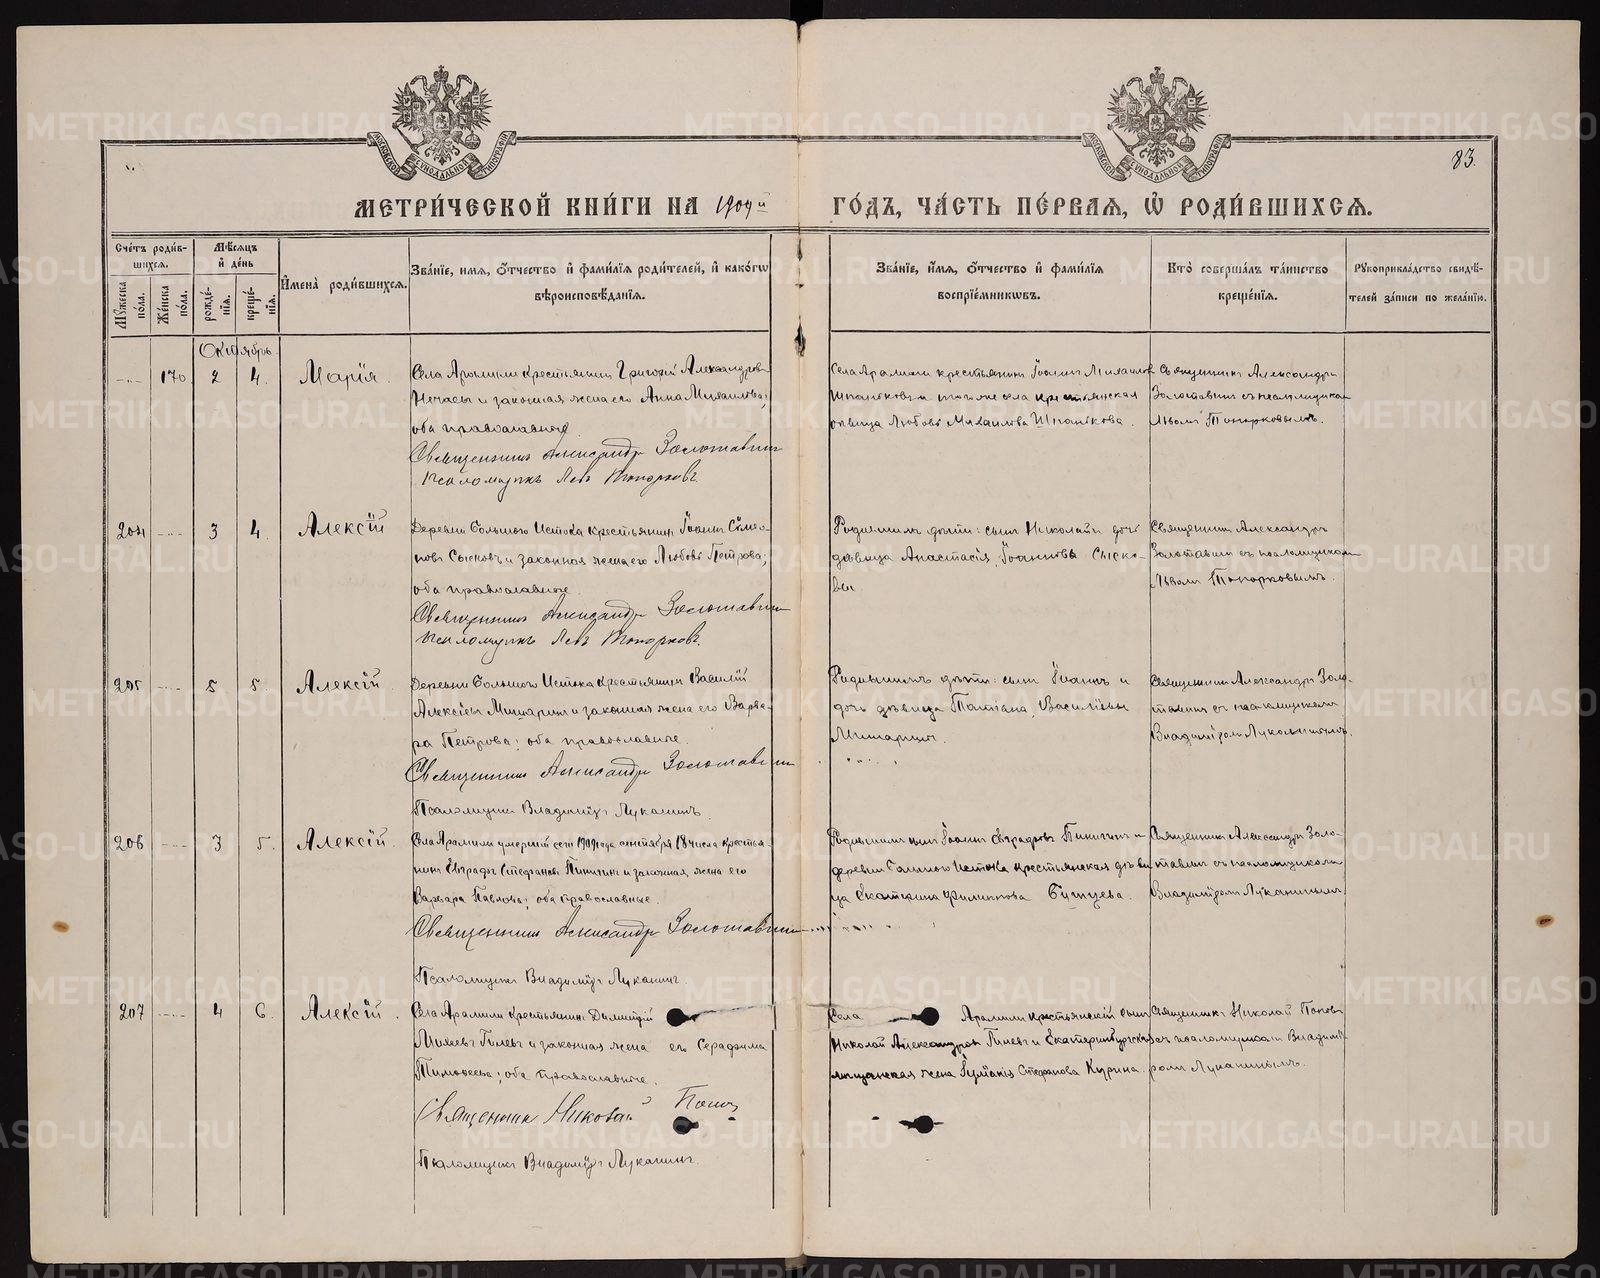 83.
МЕТРИ́ЧЕСКОЙ КНИ́ГИ НА 1909й ГО́ДЪ, ЧА́СТЬ ПЕ́РВАЯ, Ѡ РОДИ́ВШИХСЯ.
Сче́тъ роди́вшихся.
Му́жеска по́ла.
Же́нска по́ла.
Мѣ́сяцъ и҆ де́нь
рожде́нїя.
креще́нїя.
И҆мена̀ роди́вшихся.
Зва́нїе, и҆мя, ѻ҆́тчество и҆ фами́лїя роди́телей, и҆ како́гѡ
вѣроисповѣ́данїя.
Зва́нїе, и҆́мя, ѻ҆́тчество и҆ фами́лїя
воспрїе́мникѡвъ.
Кто̀ соверша́лъ та́инство
креще́нїя.
Рꙋкоприкла́дство свидѣ́-
телей за́писи по жела́нїю.
Октябрь
170. 2 4. Марія.
Села Арамили крестьянин Григорій Александровъ
Нечаевъ и законная жена его Анна Михаилова;
оба православные.
Священникъ Александръ Золотавинъ
Псаломщикъ Левъ Топорковъ.
Села Арамили крестьянинъ Іоаннъ Михаиловъ
и того же села крестьянская
девица Любовь Михаилова
Священникъ Александръ
Золотавинъ съ псаломщикомъ
Львомъ Топорковымъ.
204 3 4. Алексій
Деревни Большого Истока крестьянинъ Іоаннъ Симео-
новъ Сысковъ и законная жена его Любовь Петрова;
оба православные.
Священникъ Александръ Золотавинъ
Псаломщикъ Левъ Топорковъ.
Родившимъ дѣти: сынъ Николай и дочь
дѣвица Анастасія Іоанновы Сыско-
вы.
Священникъ Александръ
Золотавинъ съ псаломщикомъ
Львомъ Топорковымъ.
205 5 5. Алексій.
Деревни Большого Истока крестьянинъ Василій
Алексіевъ Мишаринъ и законная жена его Варва-
ра Петрова; оба православные.
Священникъ Александръ Золотавинъ
Псаломщикъ Владиміръ Луканинъ.
Родившимъ дѣти: сынъ Іоаннъ и
дочь дѣвица Татіана Василіевы
Мишарины.
Священникъ Александръ Золо-
тавинъ съ псаломщикомъ
Владиміромъ Луканинымъ.
206 3 5. Алексій.
Села Арамили умершій сего 1909 года сентября 18 числа крестья-
нинъ Евграфъ Стефановъ и законная жена его
Варвара Павлова; оба православные.
Священникъ Александръ Золотавинъ
Псаломщикъ Владиміръ Луканинъ.
Родившимъ сынъ Іоаннъ Евграфовъ и
деревни Большого Истока крестьянская дѣви
ца Екатерина Филиппова
Священникъ Александръ Золо-
тавинъ съ псаломщикомъ
Владиміромъ Луканинымъ.
207 4 6. Алексій.
Села Арамили крестьянинъ Димитрій
Гилевъ и законная жена его Серафима
Тимоѳеева; оба православные.
Священникъ Николай Поповъ
Псаломщикъ Владиміръ Луканинъ.
Села Арамили крестьянскій сынъ
Николай Александровъ Гилевъ и Екатеринбургская
мещанская жена Іуліанія Стефанова Курина.
Священникъ Николай Поповъ
съ псаломщикомъ Владимі-
ромъ Луканинымъ.
METRIKI.GASO-URAL.RU